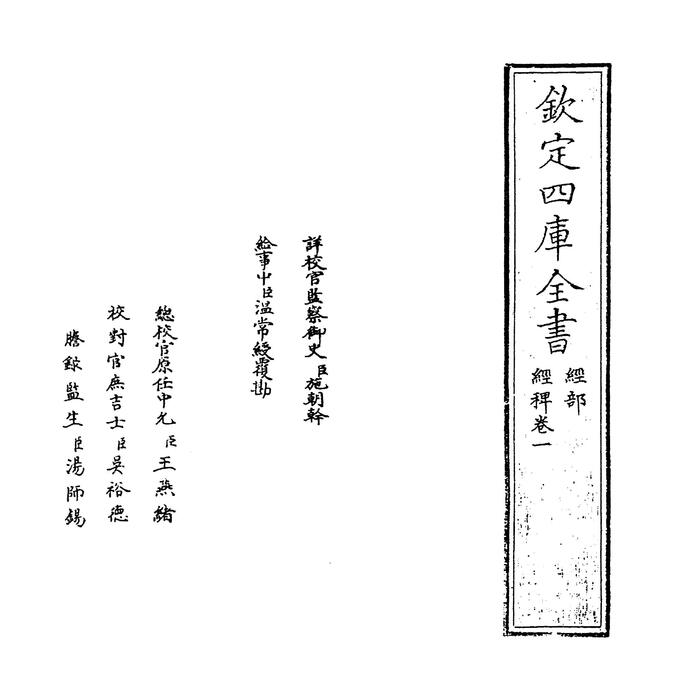 欽定四庫全書
經部
經稗卷一
詳校官監察御史臣施朝幹
給事中臣溫常綬覆勘
總校官原任中允臣王燕緒
校對官庶吉士臣吳裕德
謄錄監生臣湯師錫